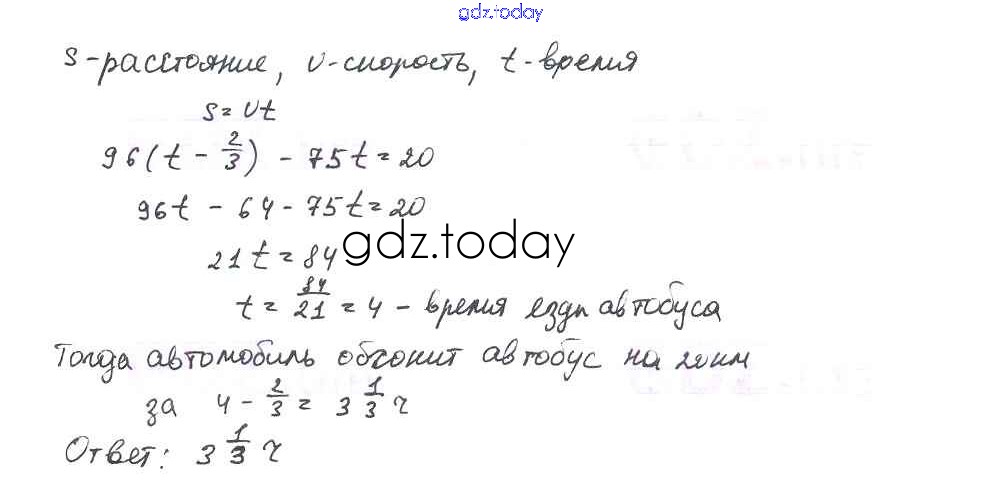 gdz.today
S-расстояние, v-скорость, t-время
S = vt
96(t - 2/3) - 75t = 20
96t - 64 - 75t = 20
21t = 84
gdz.today
t = 84/21 = 4 - время езды автобуса
Тогда автомобиль обгонит автобус на 20 км
за 4 - 2/3 = 3 1/3 ч
Ответ: 3 1/3 ч